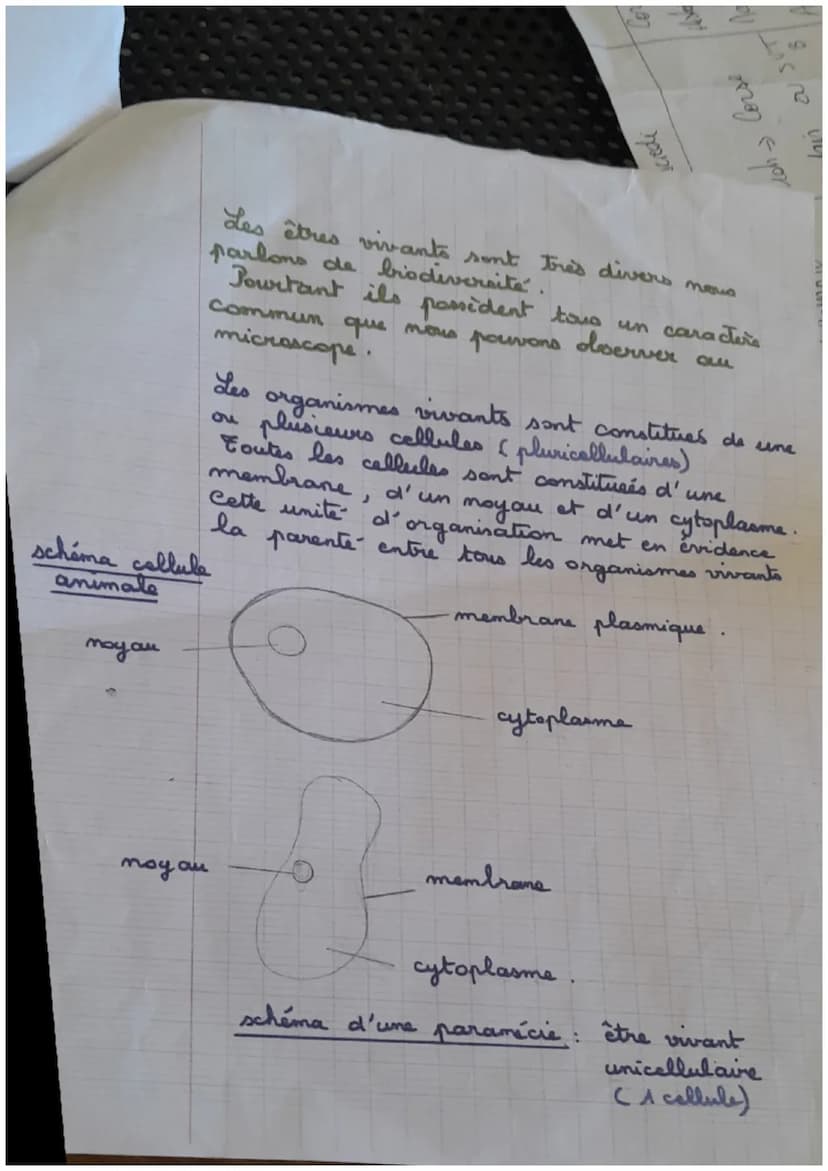 Les êtres vivants sont très divers nous
parlons de biodiversité.
Pourtant ils possèdent tous un caractère
commun que nous pouvons observer au
microscope.
Les organismes vivants sont constitués de une
ou plusieurs cellules (pluricellulaires)
Toutes les cellules sont constitués d'une
membrane, d'un noyau et d'un cytoplasme.
Cette unité d'organisation met en évidence
la parenté entre tous les organismes vivants
schéma cellule
animale
membrane plasmique.
noyau
cytoplasme
noyau
membrane
cytoplasme.
schéma d'une paramécie : être vivant
unicellulaire
(1 cellule)